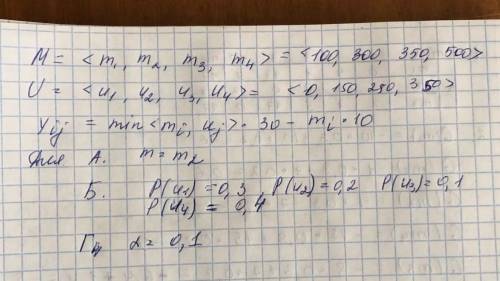 M = <m₁, m₂, m₃, m₄> = <100, 300, 350, 500>
U = <u₁, u₂, u₃, u₄> = <0, 150, 250, 350>
Yij = min<mi, uj>·30 - mi·10
Для А. m = m₂
Б. P(u₁) = 0,3, P(u₂) = 0,2 P(u₃) = 0,1
P(u₄) = 0,4
α = 0,1